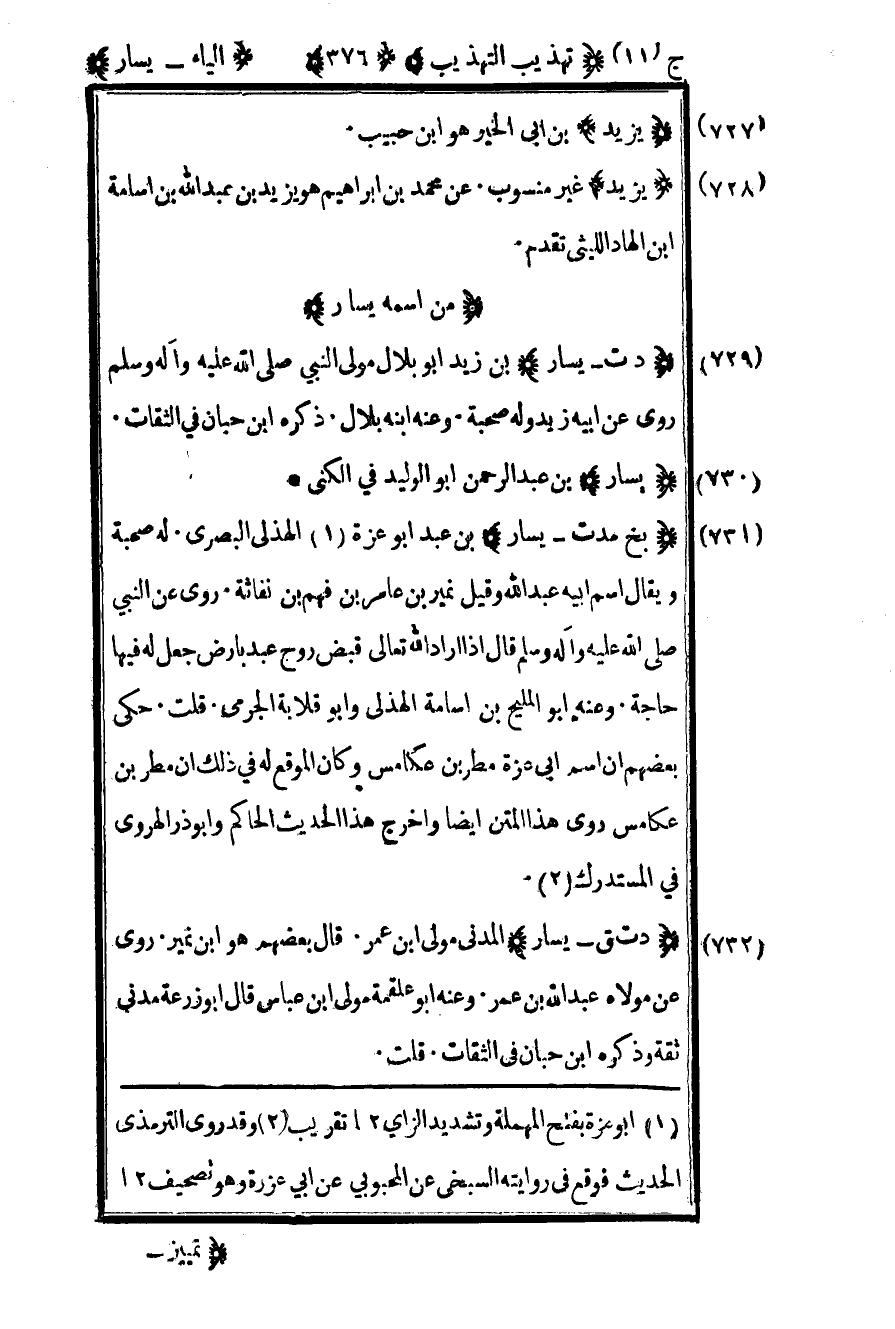 ج (١١) ﴿ تهذيب التهذيب ﴾ ﴿ ٣٧٦ ﴾ ﴿ الياء ـ يسار ﴾
(٧٢٧) ﴿ يزيد ﴾ بن ابى الخير هو ابن حبيب ٠
(٧٢٨) ﴿ يزيد ﴾ غير منسوب ٠ عن محمد بن ابراهيم هو يزيد بن عبدالله بن اسامة
ابن الهاد الليثى تقدم ٠
﴿ من اسمه يسار ﴾
(٧٢٩) ﴿ د ت ـ يسار ﴾ بن زيد ابو بلال مولى النبي صلى الله عليه وآله وسلم
روى عن ابيه زيد وله صحبة ٠ وعنه ابنه بلال ٠ ذكره ابن حبان في الثقات ٠
(٧٣٠) ﴿ يسار ﴾ بن عبد الرحمن ابو الوليد في الكنى ٠
(٧٣١) ﴿ بخ مد ت ـ يسار ﴾ بن عبد ابو عزة (١) الهذلى البصرى ٠ له صحبة
و يقال اسم ابيه عبدالله وقيل نمير بن عامر بن فهم بن نفاثة ٠ روى عن النبي
صلى الله عليه وآله وسلم قال اذا اراد الله تعالى قبض روح عبد بارض جعل له فيها
حاجة ٠ وعنه ابو المليح بن اسامة الهذلى وابو قلابة الجرمى ٠ قلت ٠ حكى
بعضهم ان اسم ابى عزة مطر بن عكامس وكان الموقع له في ذلك ان مطر بن
عكامس روى هذا المتن ايضا واخرج هذا الحديث الحاكم وابو ذر الهروى
في المستدرك (٢) ٠
(٧٣٢) ﴿ د ت ق ـ يسار ﴾ المدنى مولى ابن عمر ٠ قال بعضهم هو ابن نمير ٠ روى
عن مولاه عبدالله بن عمر ٠ وعنه ابو علقمة مولى ابن عباس قال ابو زرعة مدني
ثقة وذكره ابن حبان في الثقات ٠ قلت ٠
(١) ابو عزة بفتح المهملة وتشديد الزاي ١٢ تقريب (٢) وقد روى الترمذى
الحديث فوقع فى روايته السبخى عن المحبوبي عن ابي عزرة وهو تصحيف ١٢
﴿ تمييز ـ